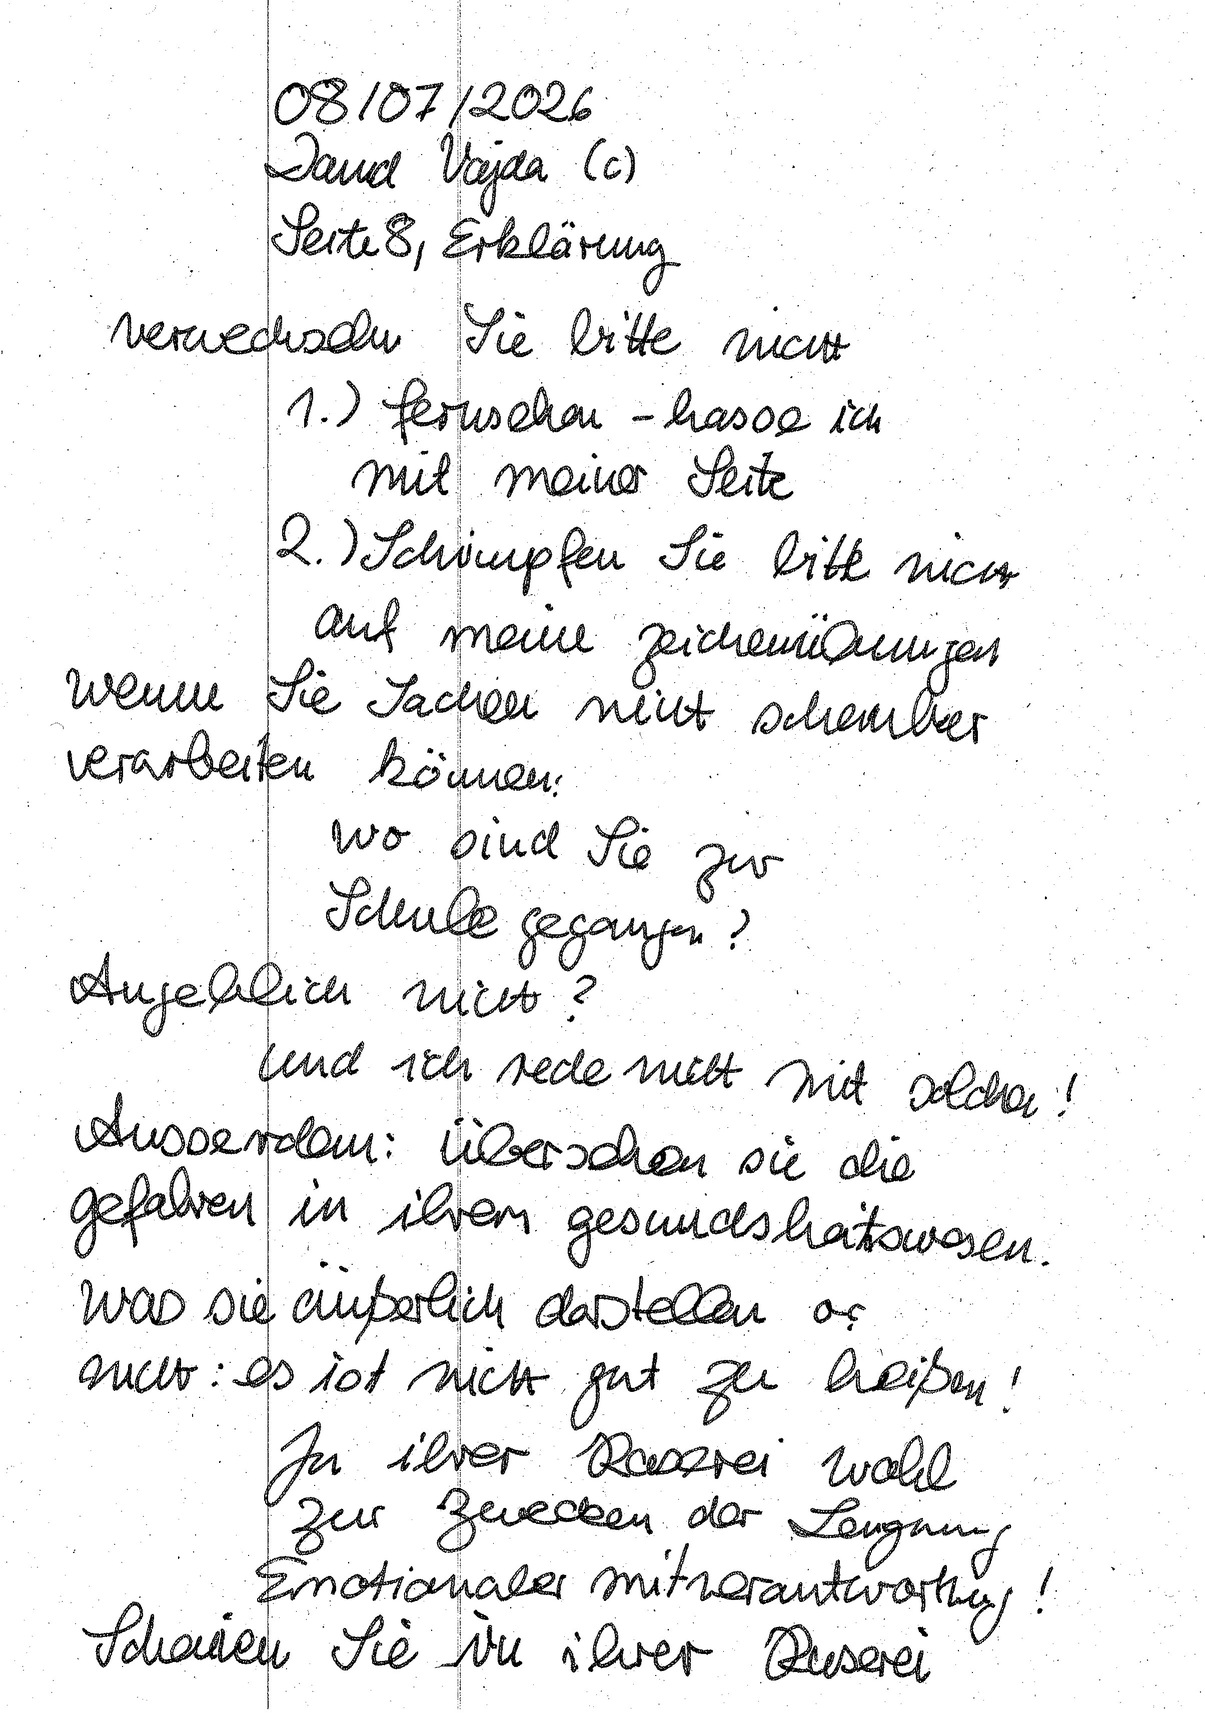 08/07/2026
David Vajda (c)
Seite 8, Erklärung
verwechseln Sie bitte nicht
1.) fernsehen - hasse ich
mit meiner Seite
2.) Schimpfen Sie bitte nicht
auf meine zeichenübungen
wenn Sie Sachen nicht
verarbeiten können:
wo sind Sie zur
Schule gegangen?
Angeblich nicht?
und ich rede nicht mit solchen!
Ausserdem: übersehen sie die
gefahren in ihrem gesundsheitswesen.
was sie äußerlich darstellen
nicht: es ist nicht gut zu heißen!
In ihrer Raserei wohl
zur zwecken der Leugnung
Emotionaler mitverantwortung!
Sie in ihrer Raserei